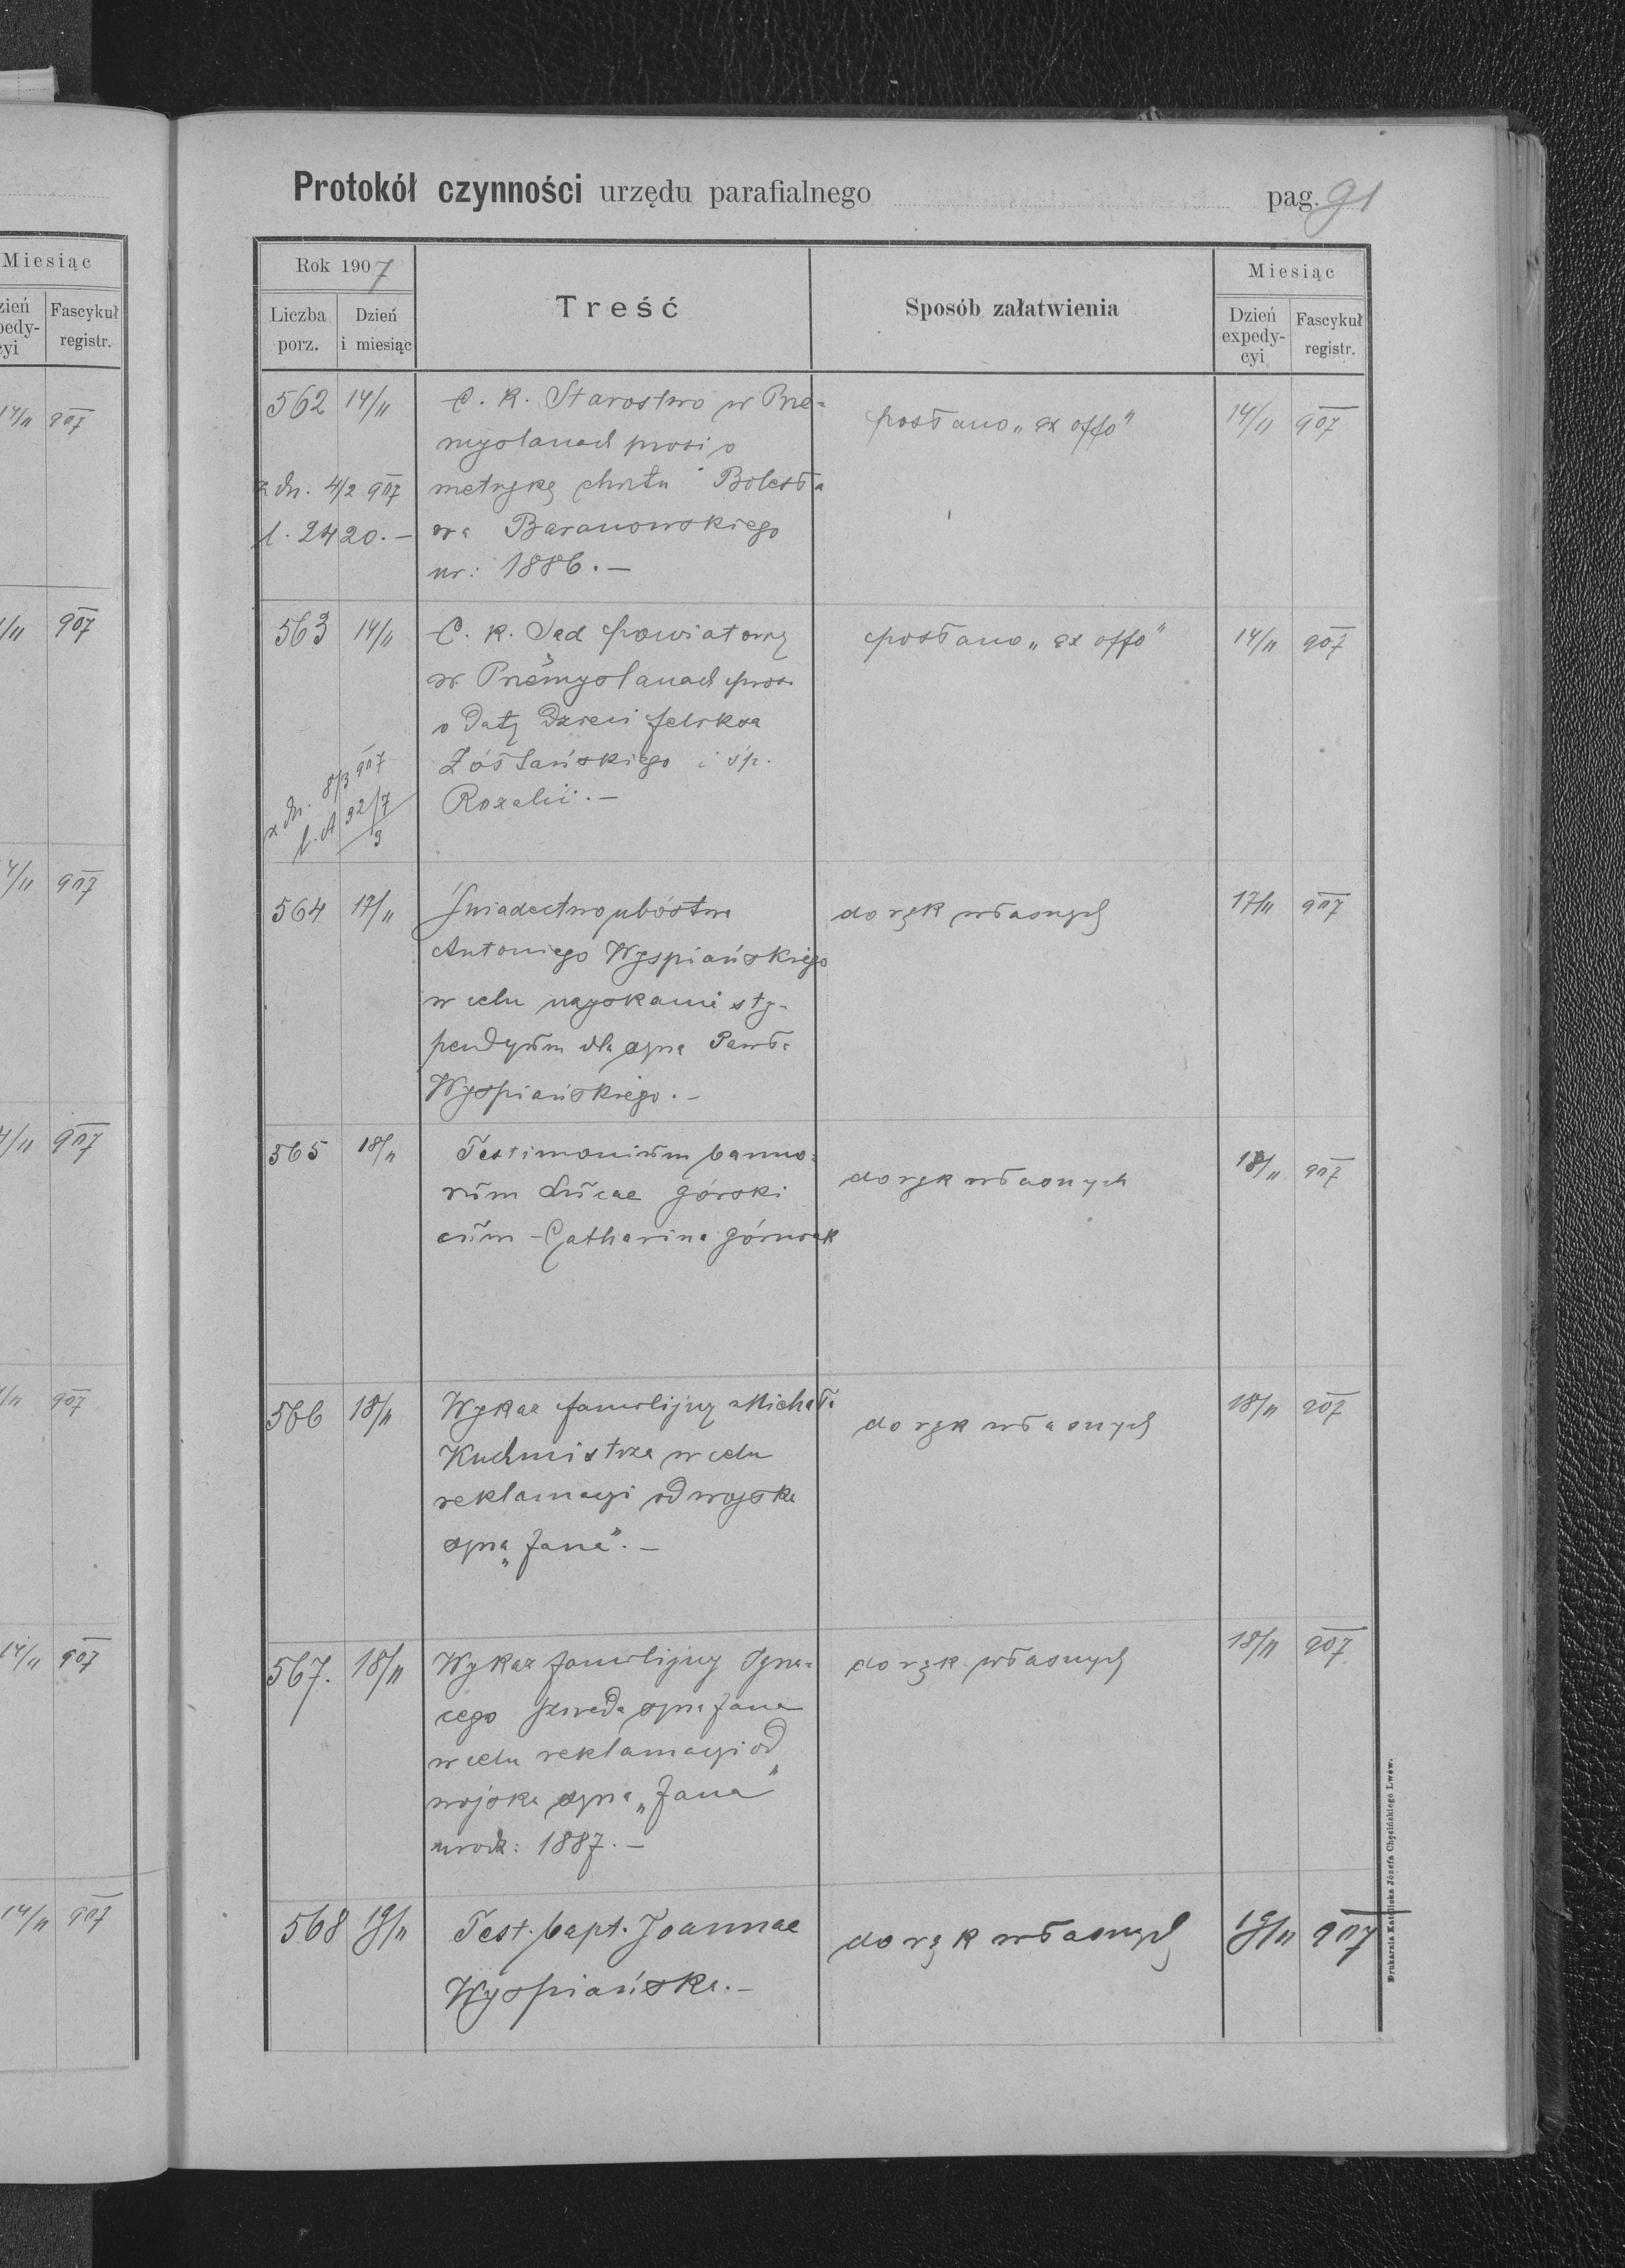 Miesiąc
Fascykuł
registr.
14/11 907
907
907
907
907
14/11 907
14/11 907
Protokół czynności urzędu parafialnego pag. 91
Rok 1907 Treść Sposób załatwienia Miesiąc
Liczba porz. Dzień i miesiąc Dzień expedy-cyi Fascykuł registr.
562 14/11 C. k. Starostwo w Prze= posłano „ex offo" 14/11 907
myślanach prosi o
z dn. 4/2 907 metrykę chrztu Bolesła
l. 2420.— wa Baranowskiego
ur: 1886.—
563 14/11 C. k. Sąd powiatowy posłano „ex offo" 14/11 907
w Przemyślanach prosi
o daty dzieci Feliksa
z dn. 8/3 907 Żółtańskiego i śp.
l. A 32/7 Rozalii.—
3
564 17/11 Świadectwo ubóstwa do rąk własnych 17/11 907
Antoniego Wyspiańskiego
w celu uzyskania sty-
pendyum dla syna Pawła
Wyspiańskiego.—
565 18/11 Testimonium banno= do rąk własnych 18/11 907
rum Lucae Górski
cum Catharina Górniak
566 18/11 Wykaz familijny Michała do rąk własnych 18/11 907
Kuchmistrza w celu
reklamacyi od wojska
syna „Jana".—
567. 18/11 Wykaz familijny Igna= do rąk własnych 18/11 907
cego Szweda syna Jana
w celu reklamacyi od
wojska syna „Jana"
urodz: 1887.—
568 19/11 Test. bapt. Joannae do rąk własnych 19/11 907
Wyspiańska.—
Drukarnia Katolicka Józefa Chęcińskiego Lwów.